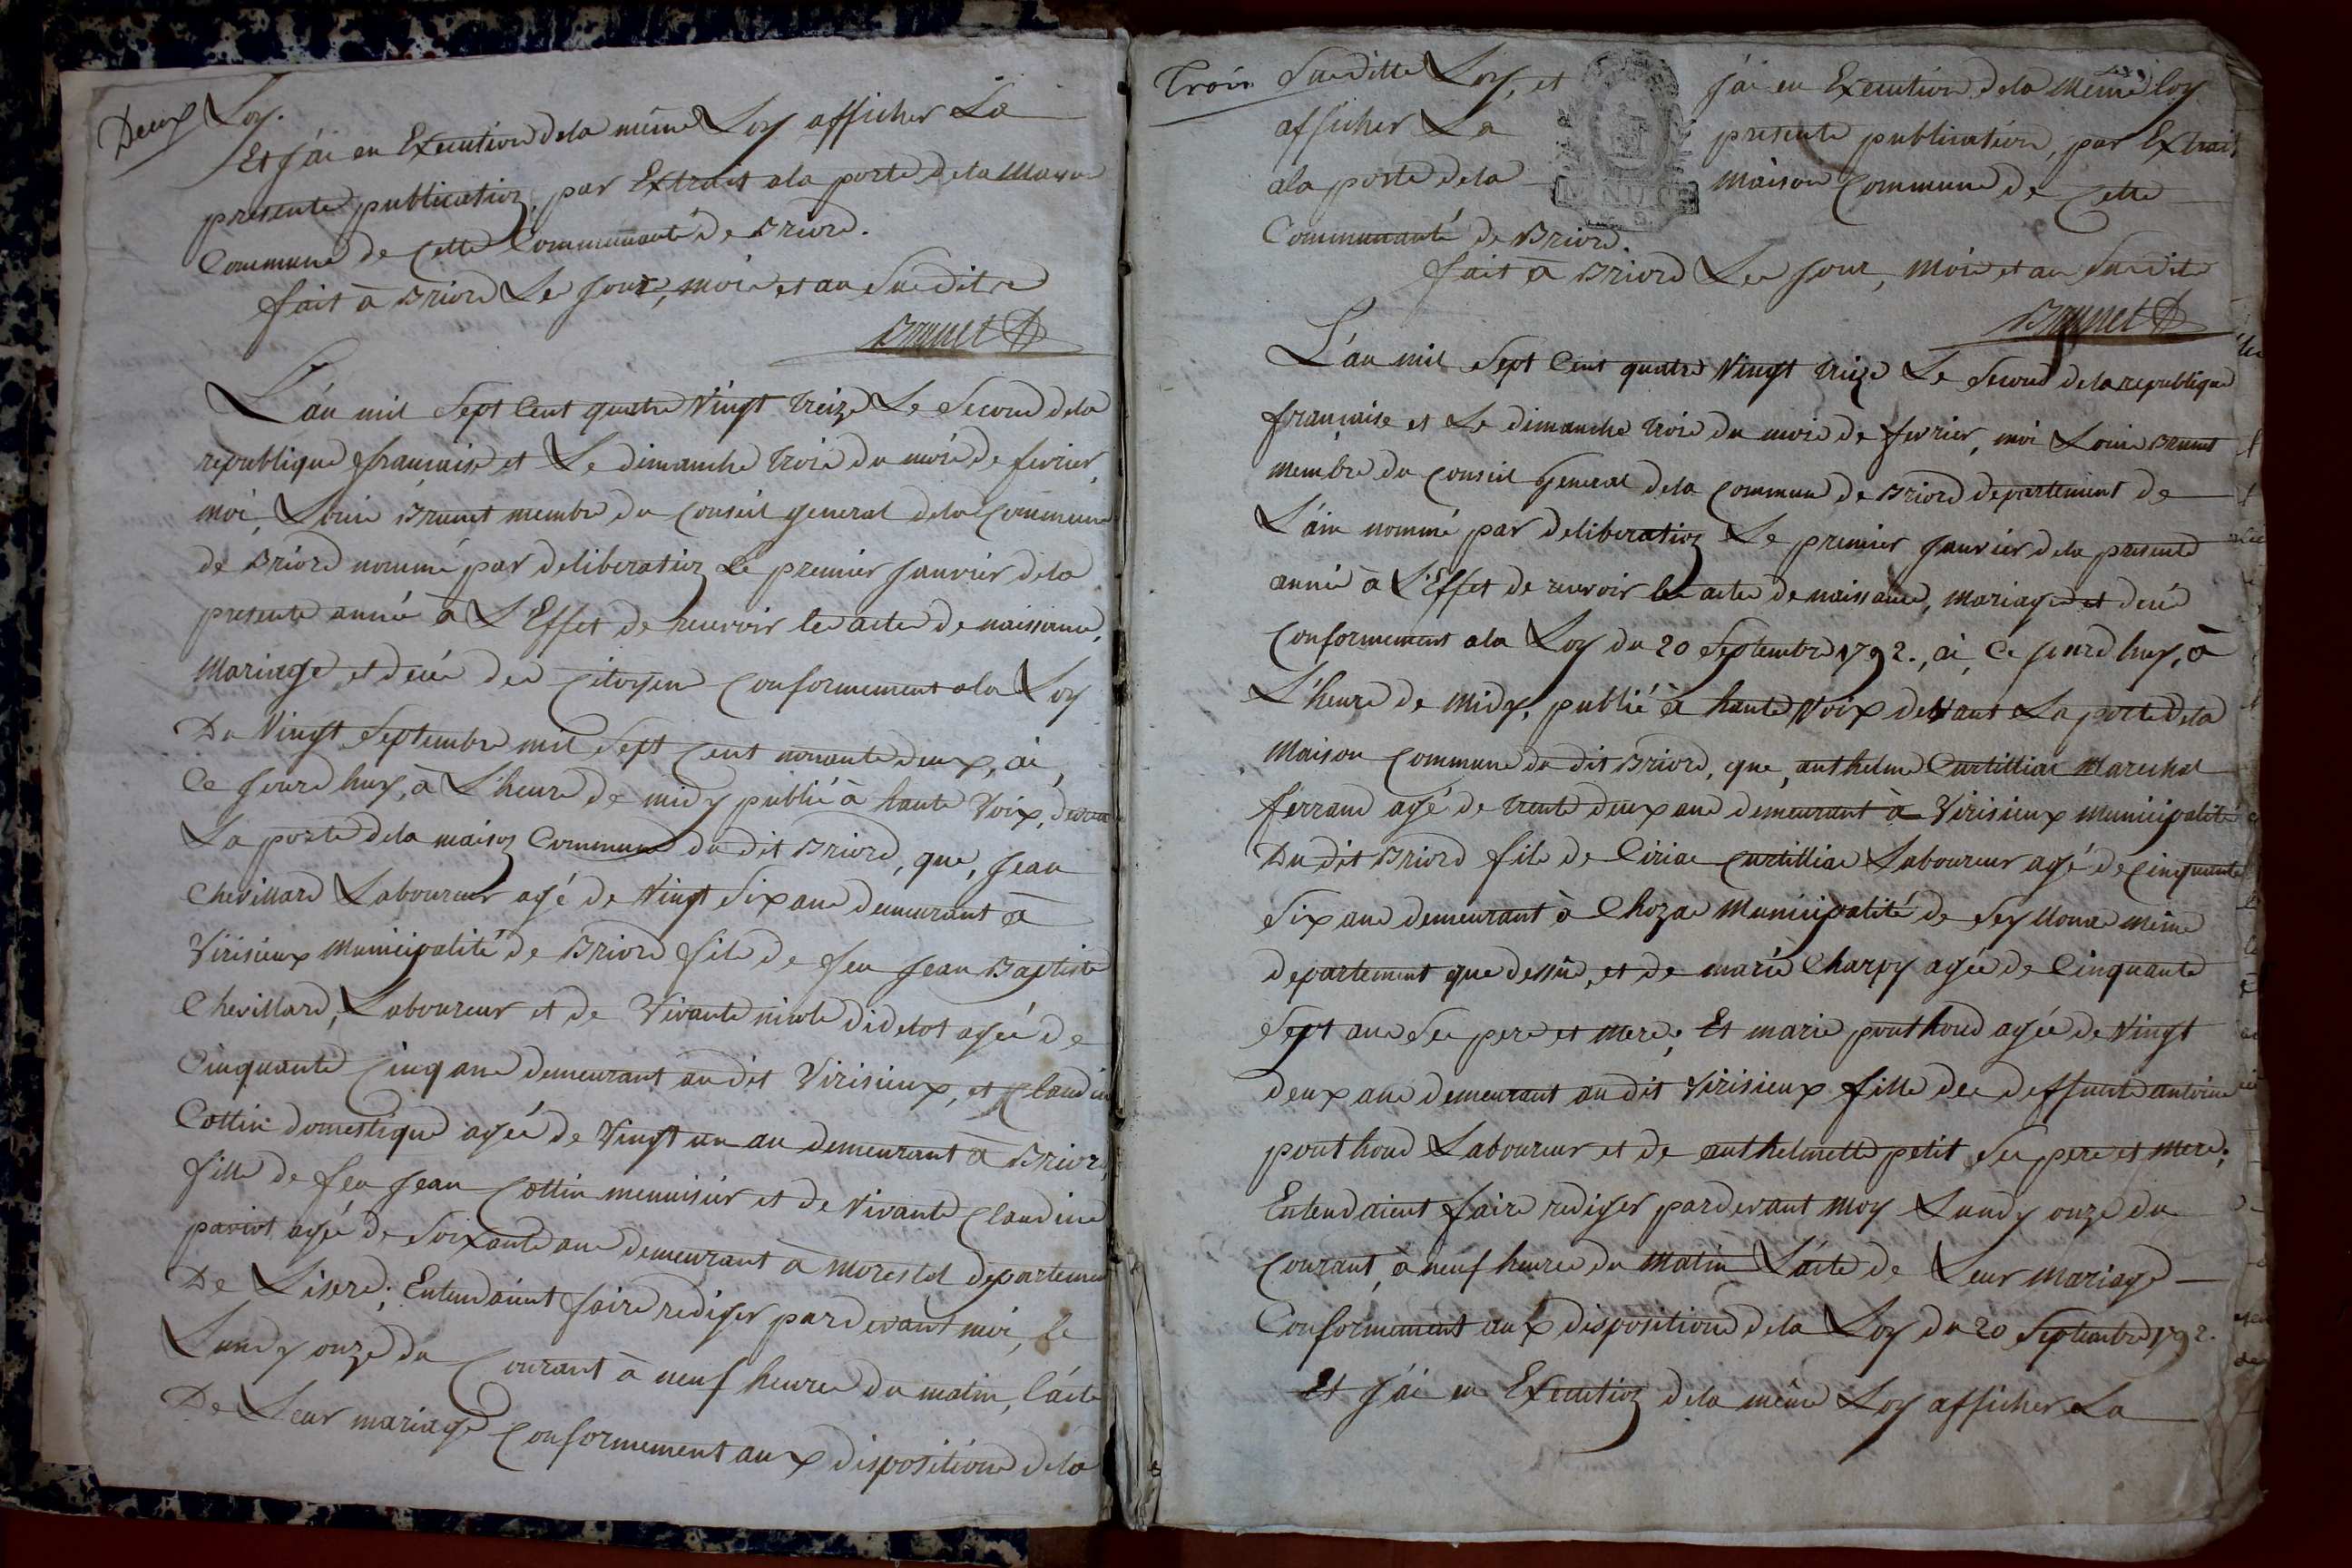 Deux
Loy.
Et j'ai en Execution dela même Loy afficher La
presente publication, par Extrait ala porte dela Maison
Commune de Cette Communauté de Briord.
fait à Briord Le jour, mois et an Susdits
Brunet
L'an mil Sept Cent quatre Vingt treize Le Second dela
republique française et Le dimanche trois du mois de fevrier,
moi, Louis Brunet membre du Conseil general dela Commune
de Briord nommé par deliberation Le premier janvier dela
presente année à L'Effet de recevoir les actes de naissance,
Mariage et decés des Citoyens Conformement ala Loy
Du Vingt Septembre mil Sept Cent nonante deux, ai,
Ce jourd'huy, à L'heure de midy publié à haute Voix, devant
La porte dela maison Commune du dit Briord, que, Jean
Chevillard Laboureur agé de Vingt Six ans demeurant à
Virisieux Municipalité de Briord fils de feu Jean Baptiste
Chevillard, Laboureur et de Vivante nicole didelot agée de
Cinquante Cinq ans demeurant au dit Virisieux, et Claudine
Cottin domestique agée de Vingt un an demeurant à Briord,
fille de feu Jean Cottin menuisier et de Vivante Claudine
paviot agée de Soixante ans demeurant à morestel departement
De Lisere; Entendaient faire rediger pardevant moi, le
Lundy onze du Courant à neuf heures du matin, l'acte
De Leur mariage Conformement aux dispositions dela
Trois
Susditte Loy, et j'ai en Execution dela Même loy
afficher La presente publication, par Extrait
ala porte dela maison Commune de Cette
Communauté de Briord.
fait à Briord Les jour, mois et an Susdits
Brunet
L'an mil Sept Cent quatre Vingt treize Le Second dela republique
française et Le dimanche trois du mois de fevrier, moi Louis Brunet
membre du Conseil General dela Commune de Briord departement de
L'ain nommé par deliberation Le premier janvier dela presente
année à L'Effet de recevoir les actes de naissance, mariage et decés
Conformement ala Loy du 20 Septembre 1792., ai, Ce jourd'huy, à
L'heure de midy, publié à haute Voix devant La porte dela
Maison Commune du dit Briord, que, anthelme Curtilliac Marechal
ferrand agé de trente deux ans demeurant à Virisieux Municipalité
Du dit Briord fils de Ciriac Curtilliac Laboureur agé de Cinquante
Six ans demeurant à Chozas Municipalité de Seyllonas même
departement que dessus, et de marie Charpy agée de Cinquante
Sept ans Ses pere et mere; Et marie ponthoud agée de Vingt
deux ans demeurant au dit Virisieux fille des deffunts antoine
ponthoud Laboureur et de anthelmette petit Ses pere et mere;
Entendaient faire rediger pardevant moy Lundy onze du
Courant, à neuf heures du matin L'acte de Leur mariage
Conformement aux dispositions dela Loy du 20 Septembre 1792.
Et j'ai en Execution dela même Loy afficher La